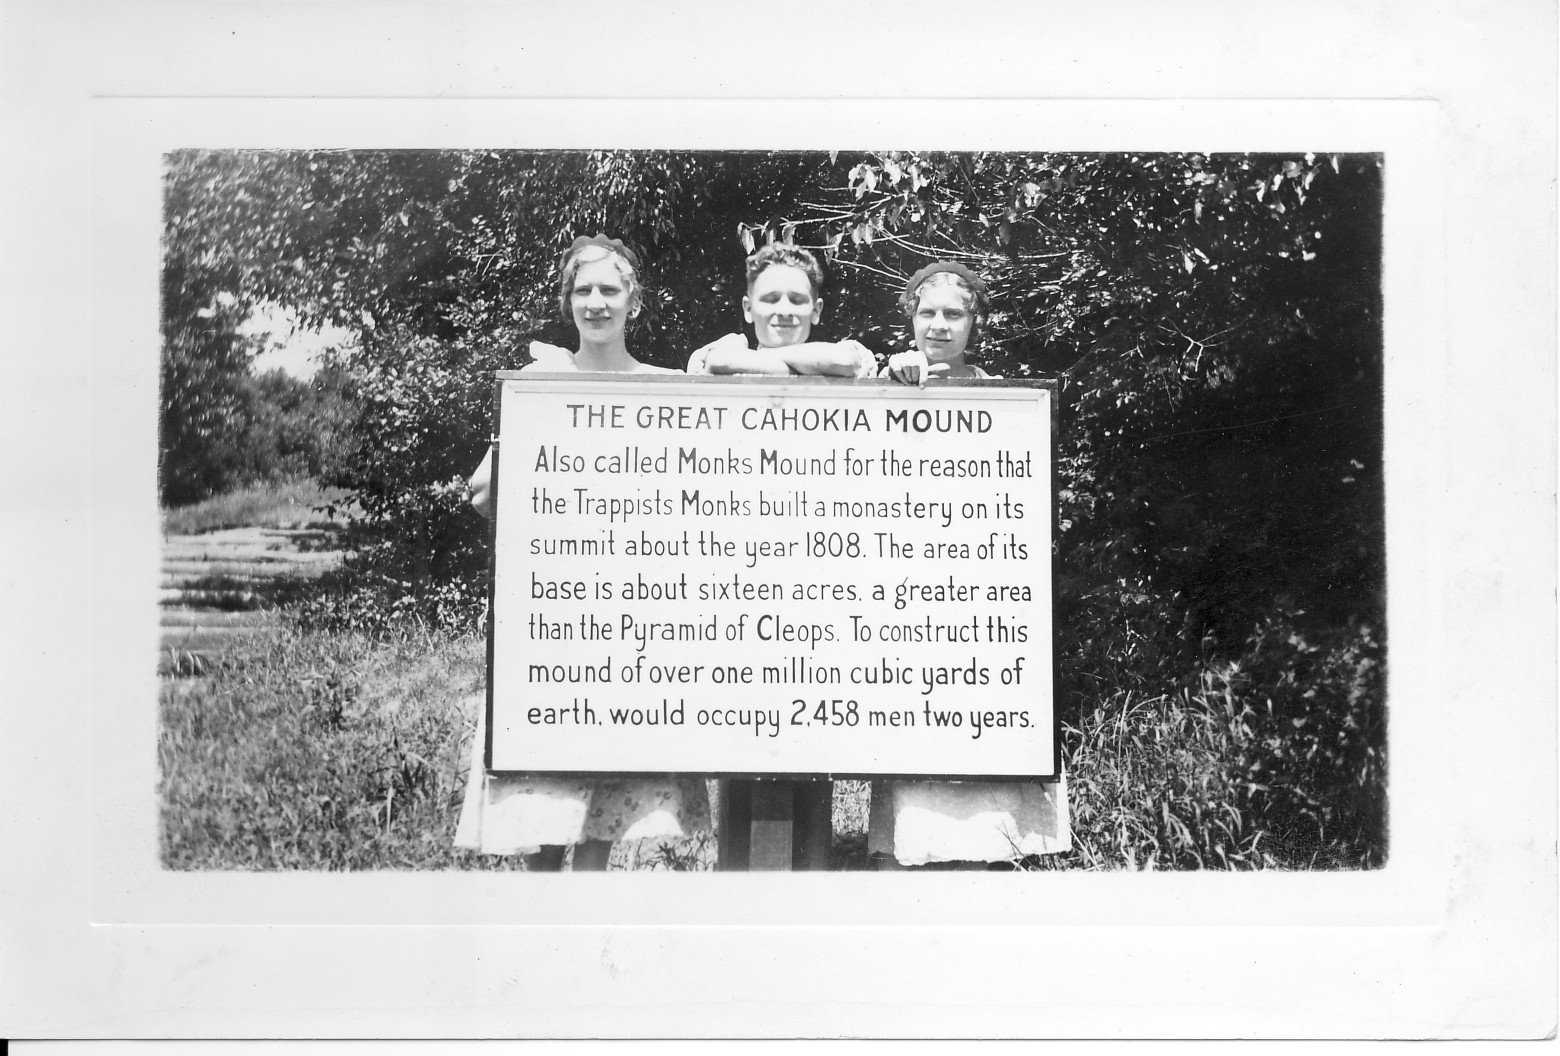 THE GREAT CAHOKIA MOUND
Also called Monks Mound for the reason that
the Trappists Monks built a monastery on its
summit about the year 1808. The area of its
base is about sixteen acres, a greater area
than the Pyramid of Cleops. To construct this
mound of over one million cubic yards of
earth, would occupy 2,458 men two years.